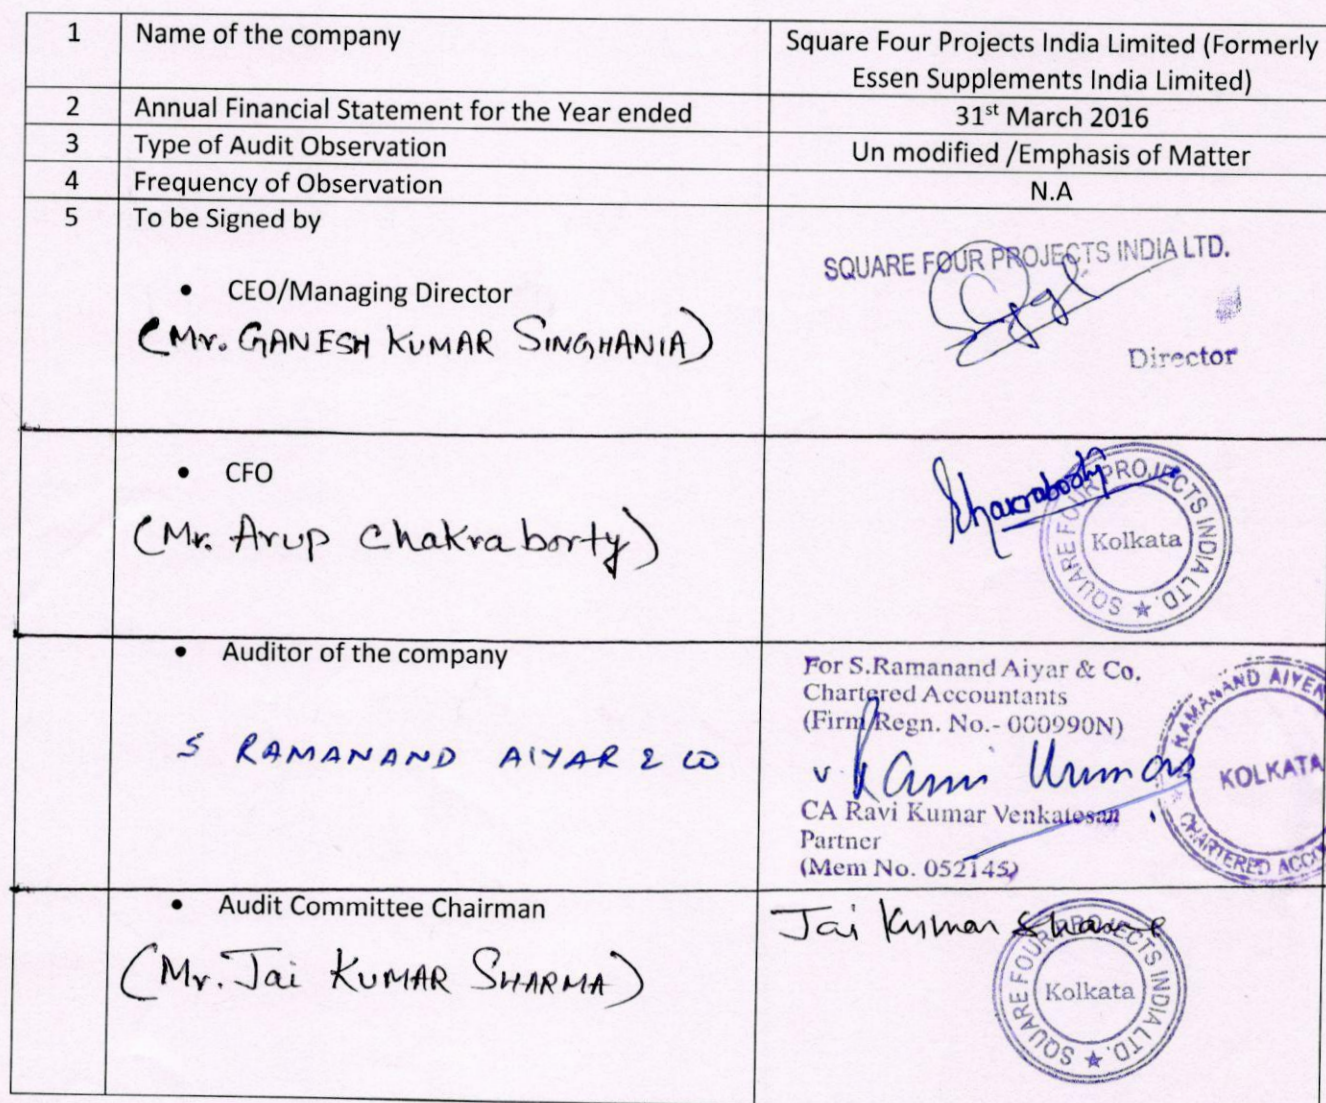 1 Name of the company Square Four Projects India Limited (Formerly
Essen Supplements India Limited)
2 Annual Financial Statement for the Year ended 31st March 2016
3 Type of Audit Observation Un modified /Emphasis of Matter
4 Frequency of Observation N.A
5 To be Signed by
SQUARE FOUR PROJECTS INDIA LTD.
• CEO/Managing Director
(Mr. GANESH KUMAR SINGHANIA)
Director
• CFO
(Mr. Arup Chakraborty)
Chakraborty
SQUARE FOUR PROJECTS INDIA LTD. ★
Kolkata
• Auditor of the company
S RAMANAND AIYAR & CO
For S.Ramanand Aiyar & Co.
Chartered Accountants
(Firm Regn. No.- 000990N)
v. Ravi Kumar
CA Ravi Kumar Venkatesan
Partner
(Mem No. 052145)
RAMANAND AIYER
KOLKATA
CHARTERED ACCO
• Audit Committee Chairman
(Mr. Jai KUMAR SHARMA)
Jai Kumar Sharma
SQUARE FOUR PROJECTS INDIA LTD. ★
Kolkata